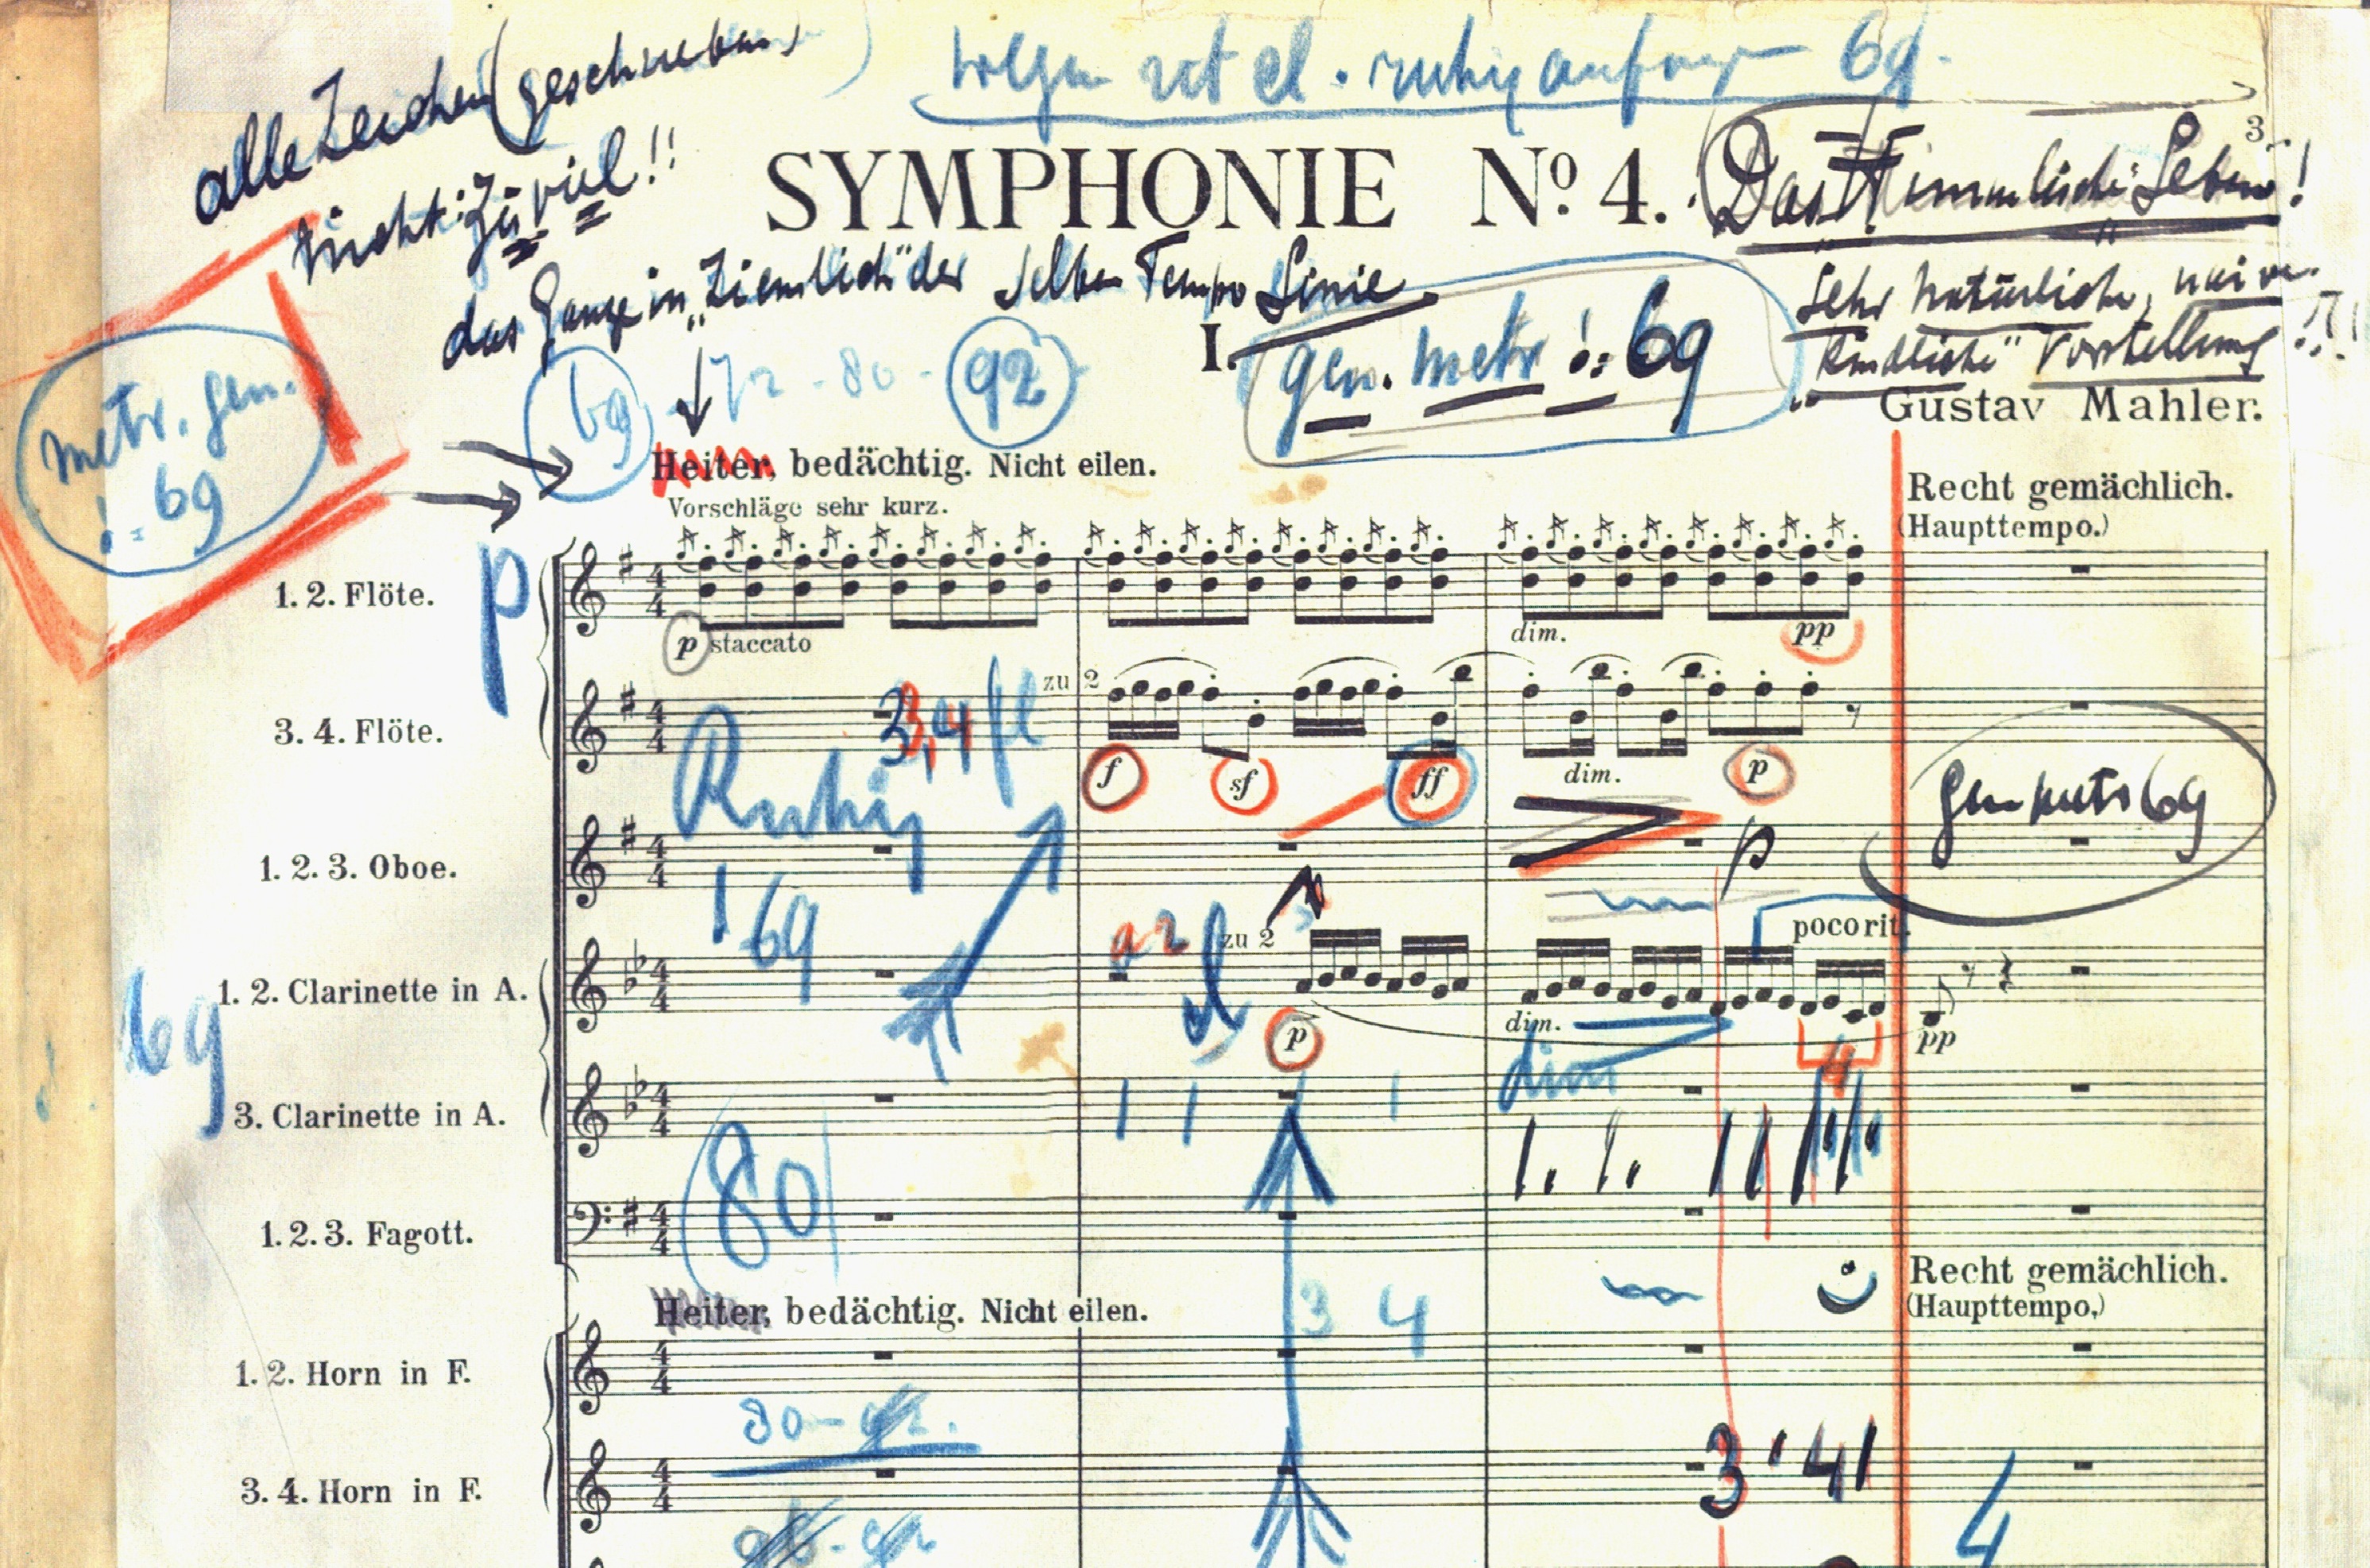 alle Zeichen (geschrieben)
nicht: zu viel!!
ruhig 69.
SYMPHONIE Nº 4.
3
"Das Himmlische Leben"!
das Ganze in "Ziemlich" der selben Tempo Linie
Sehr natürliche, naive
"kindliche" Vorstellung!!!
I.
gen. metr : 69
Gustav Mahler.
metr. gen.
: 69
69 - 72 - 80 - 92
Heiter, bedächtig. Nicht eilen.
Vorschläge sehr kurz.
Recht gemächlich.
(Haupttempo.)
1. 2. Flöte.
p
p staccato
dim.
pp
3. 4. Flöte.
3,4 fl
zu 2
f
sf
ff
dim.
p
Ruhig
69
gen metr 69
1. 2. 3. Oboe.
p
1. 2. Clarinette in A.
69
a 2
zu 2
p
dim.
poco rit.
pp
dim
4
3. Clarinette in A.
80
1. 2. 3. Fagott.
Heiter, bedächtig. Nicht eilen.
3 4
Recht gemächlich.
(Haupttempo.)
1. 2. Horn in F.
80 - 92.
3. 4. Horn in F.
3 4
4